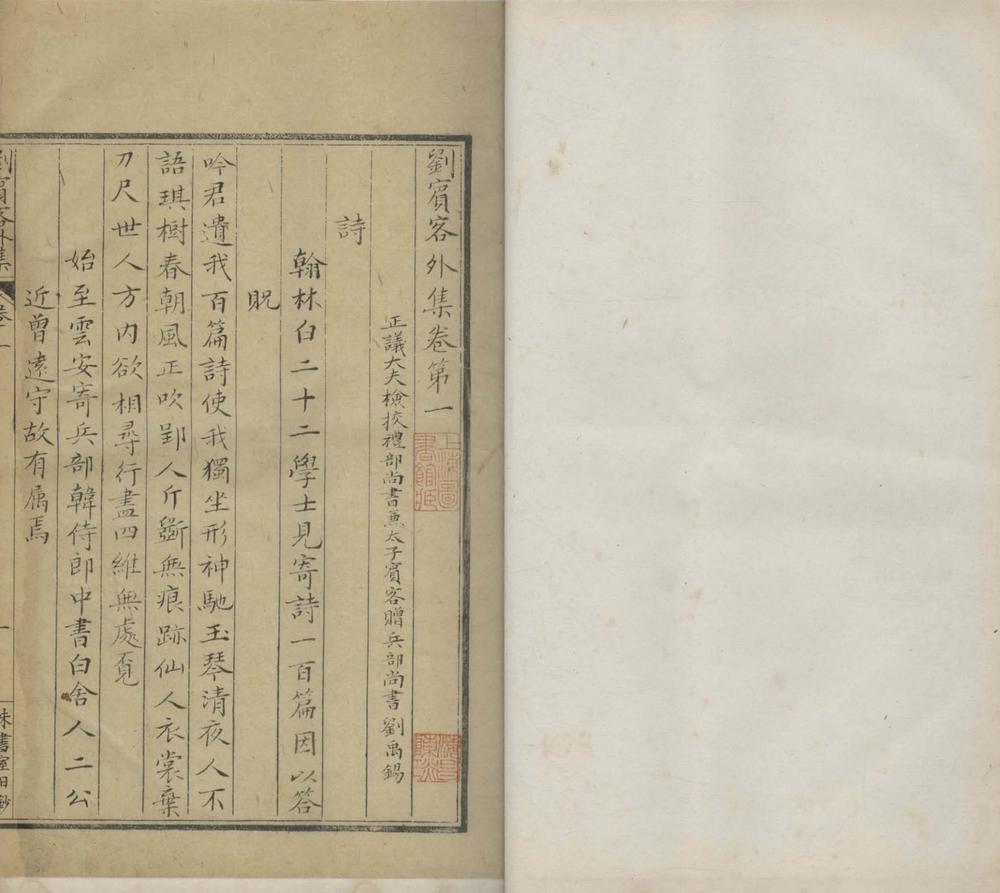 劉賓客外集卷第一
正議大夫檢挍禮部尚書兼太子賓客贈兵部尚書劉禹錫
詩
翰林白二十二學士見寄詩一百篇因以答
貺
吟君遺我百篇詩使我獨坐形神馳玉琴清夜人不
語琪樹春朝風正吹郢人斤斵無痕跡仙人衣裳棄
刀尺世人方內欲相尋行盡四維無處覓
始至雲安寄兵部韓侍郎中書白舍人二公
近曾遠守故有属焉
劉賓客外集
卷一
一
上海圖書館藏